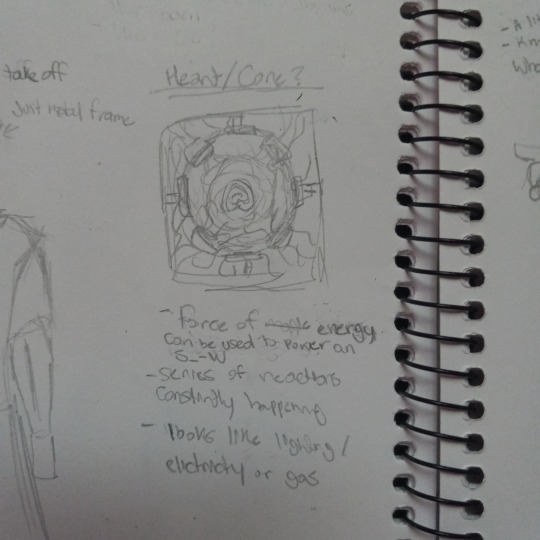 take off
Just metal frame
Heart/Core?
- force of energy
can be used to power an
S_-W
- series of reactors
constantly happening
- looks like lighting/
electricity or gas
- A
- Kn
Who